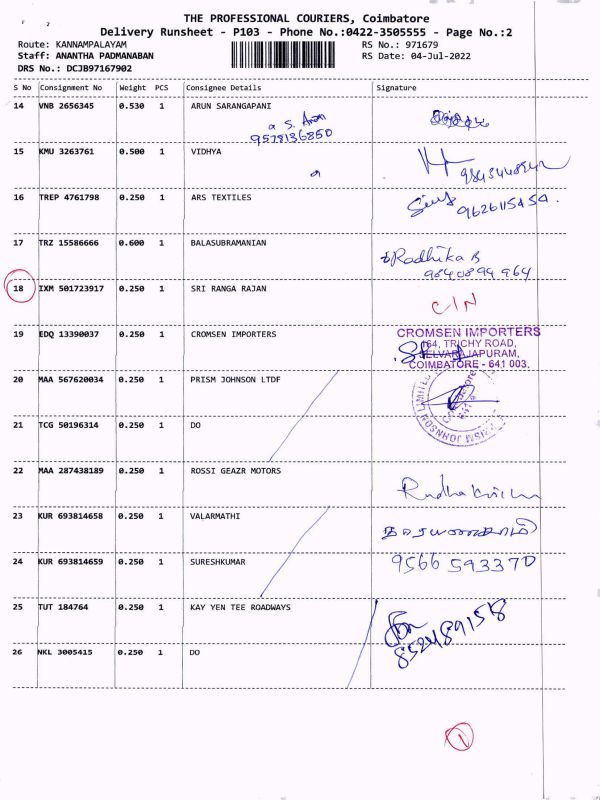 THE PROFESSIONAL COURIERS, Coimbatore
Delivery Runsheet - P103 - Phone No.:0422-3505555 - Page No.:2
Route: KANNAMPALAYAM RS No.: 971679
Staff: ANANTHA PADMANABAN RS Date: 04-Jul-2022
DRS No.: DCJB97167902
S No Consignment No Weight PCS Consignee Details Signature
14 VNB 2656345 0.530 1 ARUN SARANGAPANI
a S. Arun
9578136850
15 KMU 3263761 0.500 1 VIDHYA
16 TREP 4761798 0.250 1 ARS TEXTILES
9626115454.
17 TRZ 15586666 0.600 1 BALASUBRAMANIAN
Radhika B
9840894964
18 IXM 501723917 0.250 1 SRI RANGA RAJAN
C/N
19 EDQ 13390037 0.250 1 CROMSEN IMPORTERS
CROMSEN IMPORTERS
164, TRICHY ROAD,
SELVARAJAPURAM,
COIMBATORE - 641 003.
20 MAA 567620034 0.250 1 PRISM JOHNSON LTDF
PRISM JOHNSON LIMITED
Coimbatore
21 TCG 50196314 0.250 1 DO
22 MAA 287438189 0.250 1 ROSSI GEAZR MOTORS
23 KUR 693814658 0.250 1 VALARMATHI
24 KUR 693814659 0.250 1 SURESHKUMAR
9566593370
25 TUT 184764 0.250 1 KAY YEN TEE ROADWAYS
852489158
26 NKL 3005415 0.250 1 DO
1